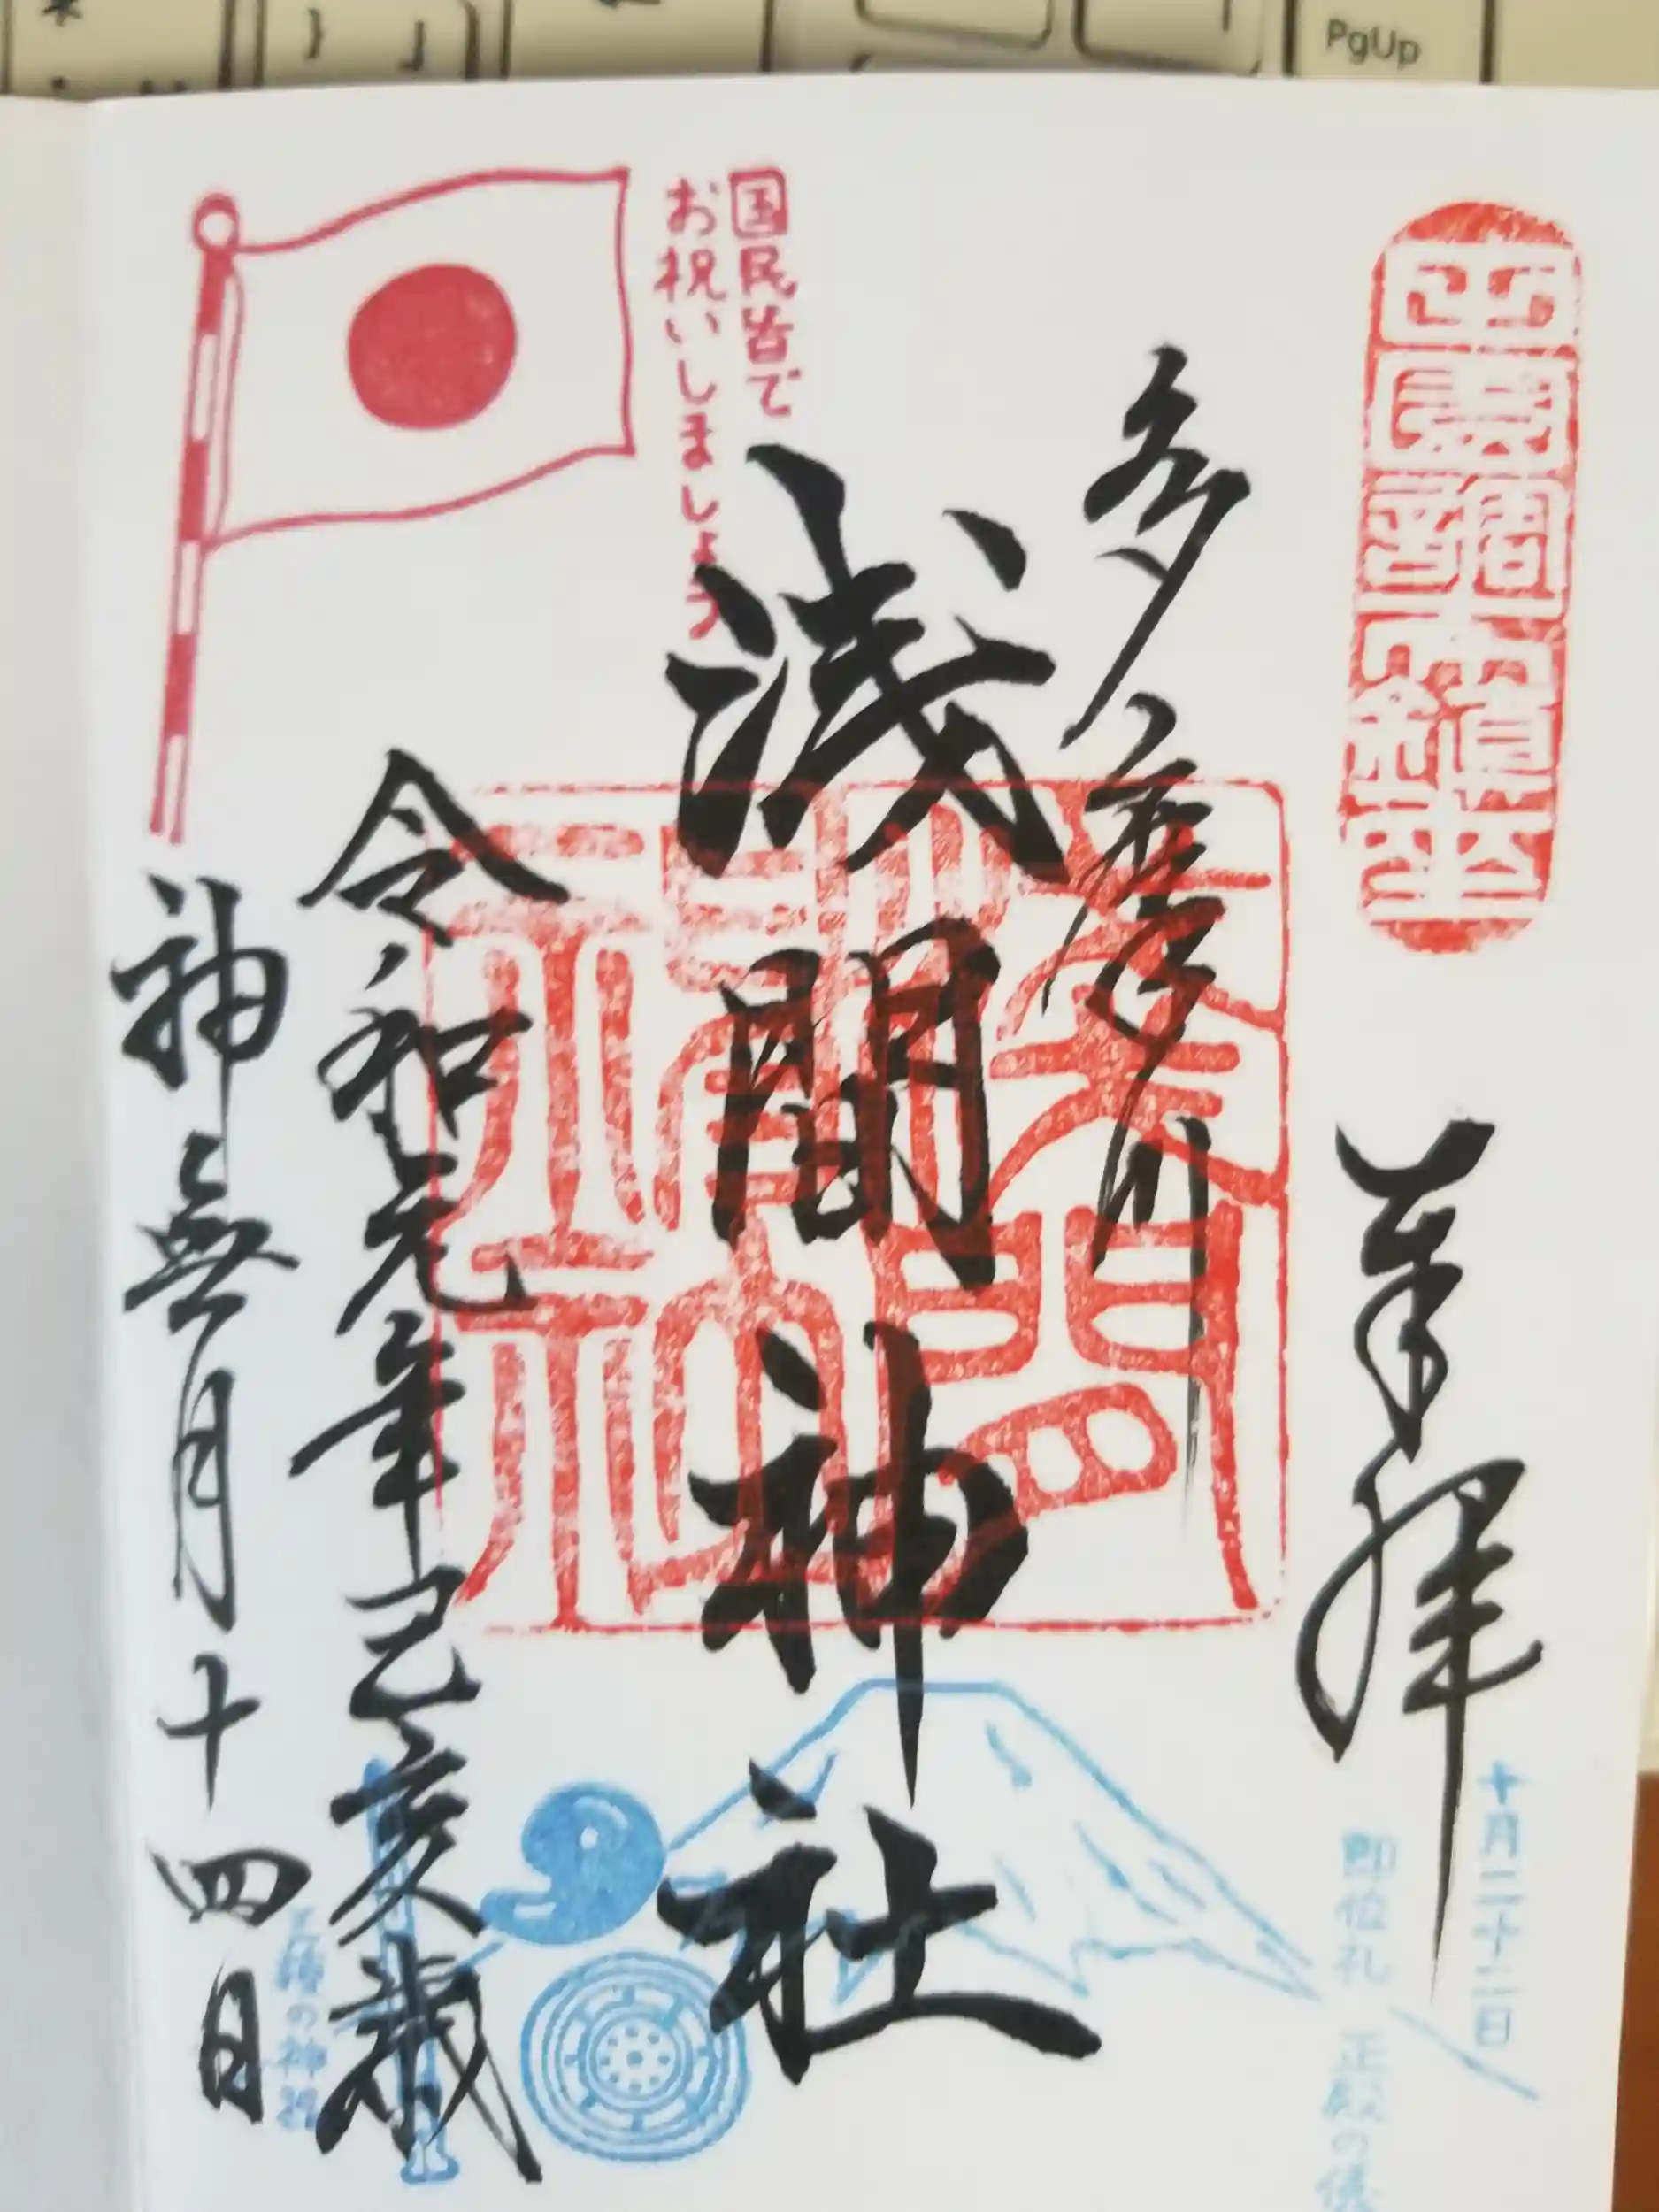 PgUp
奉拝
十月二十二日
即位礼 正殿の儀
多摩川
浅間神社
国民皆で
お祝いしましょう
令和元年己亥歳
神無月十四日
の神器